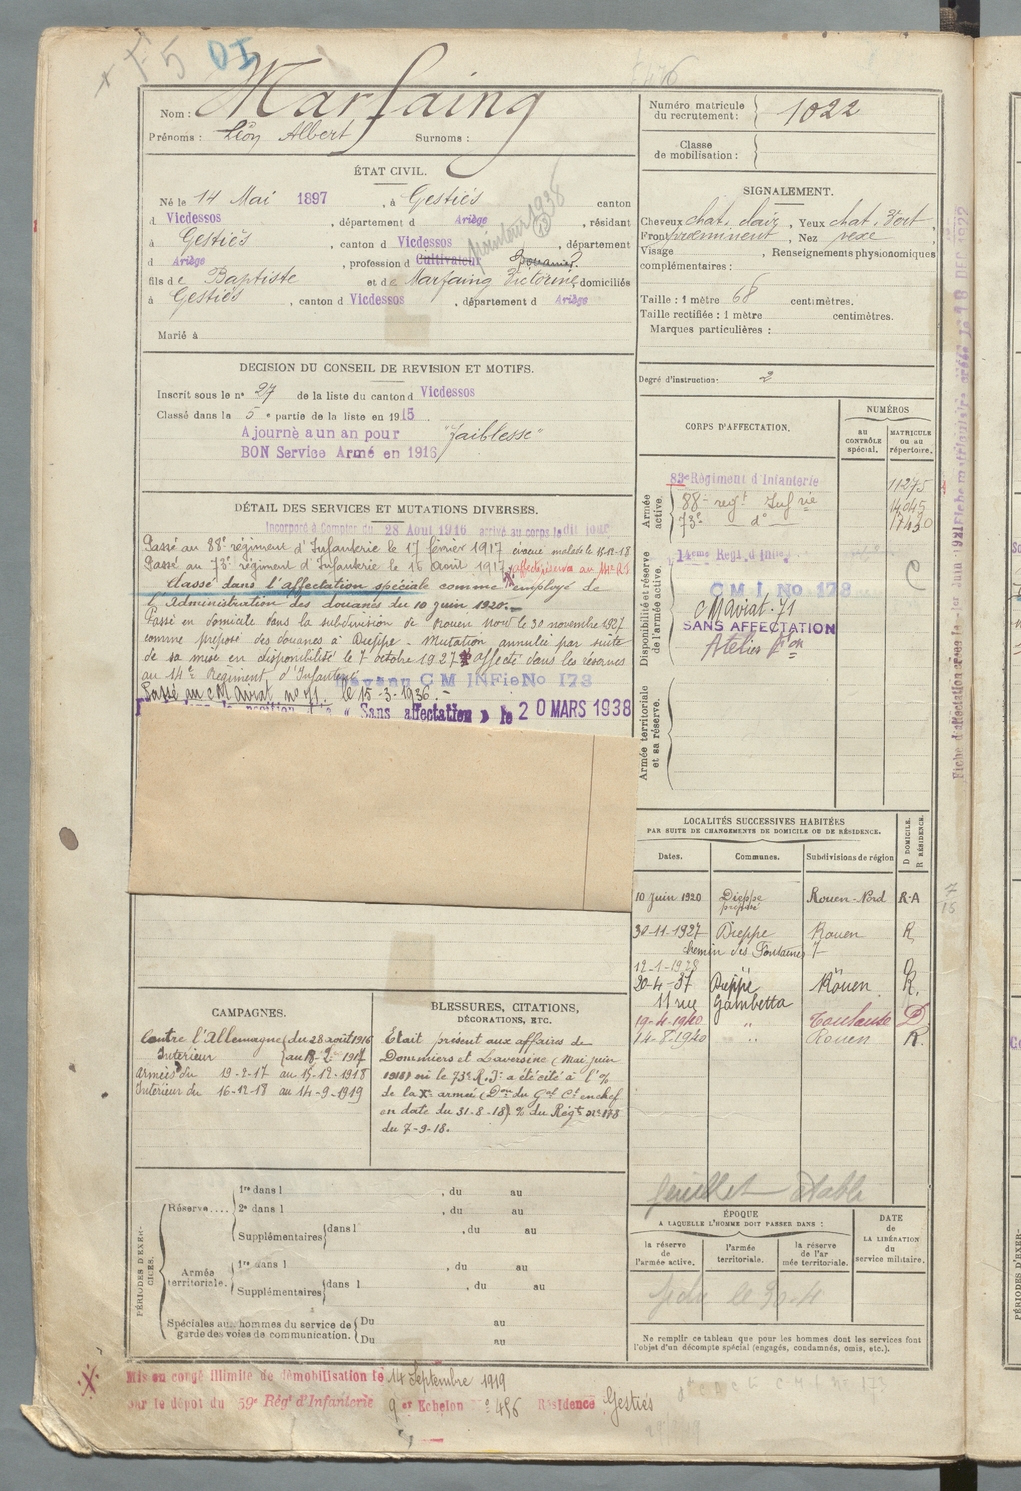 F5 DI
Nom : Marfaing
Prénoms : Léon Albert Surnoms :
Numéro matricule
du recrutement : 1022
Classe
de mobilisation :
ÉTAT CIVIL.
Né le 14 Mai 1897, à Gestiès canton
d Vicdessos, département d Ariège, résidant
à Gestiès, canton d Vicdessos, département
d Ariège, profession d Cultivateur Douanier
fils de Baptiste et de Marfaing Victorine, domiciliés
à Gestiès, canton d Vicdessos, département d Ariège
Marié à
SIGNALEMENT.
Cheveux chat. clair, Yeux chat. vert
Front proéminent, Nez vexe
Visage , Renseignements physionomiques
complémentaires :
Taille : 1 mètre 68 centimètres.
Taille rectifiée : 1 mètre centimètres.
Marques particulières :
Degré d'instruction : 2
DECISION DU CONSEIL DE REVISION ET MOTIFS.
Inscrit sous le n° 27 de la liste du canton d Vicdessos
Classé dans la 5e partie de la liste en 1915
Ajourné a un an pour "faiblesse"
BON Service Armé en 1916
CORPS D'AFFECTATION.
NUMÉROS
au
CONTRÔLE
spécial.
MATRICULE
ou au
répertoire.
Armée
active.
83e Régiment d'Infanterie 11275
88me regt Infrie
73e do
Disponibilité et réserve
de l'armée active.
14eme Regi. d'Infie
C M I No 173
CM Aviat. 71
SANS AFFECTATION
Armée territoriale
et sa réserve.
DÉTAIL DES SERVICES ET MUTATIONS DIVERSES.
Incorporé à Compter du 28 Aout 1916 arrivé au corps le dit jour
Passé au 88e régiment d'Infanterie le 17 février 1917 évacué malade le 15-12-18
Passé au 73e régiment d'Infanterie le 16 Août 1917
Classé dans l'affectation spéciale comme employé de
l'Administration des douanes du 10 juin 1920.
Passé en domicile dans la subdivision de Rouen nord le 30 novembre 1927
comme préposé des douanes à Dieppe - Mutation annulée par suite
de sa mise en disponibilité le 7 octobre 1927 affecté dans les réserves
au 14e Régiment d'Infanterie
Devenu C M INFie No 173
Passé au CM Aviat no 71. le 15-3-1936.
"Sans affectation" le 20 MARS 1938
LOCALITÉS SUCCESSIVES HABITÉES
PAR SUITE DE CHANGEMENTS DE DOMICILE OU DE RÉSIDENCE.
Dates. Communes. Subdivisions de région D DOMICILE. R RÉSIDENCE.
10 Juin 1920 Dieppe Rouen-Nord R-A
préposé
30-11-1927 Dieppe Rouen R
chemin des Fontaines 7
12-1-1928 " " D
20-4-37 Dieppe Rouen R.
11 rue Gambetta
19-4-1940 " Toulouse D
14-8-1940 " Rouen R.
CAMPAGNES.
Contre l'Allemagne du 28 août 1916
Intérieur au 18-2-1917
armées du 19-2-17 au 15-12-1918
Intérieur du 16-12-18 au 14-9-1919
BLESSURES, CITATIONS,
DÉCORATIONS, ETC.
Etait présent aux affaires de
Dommiers et Laversine (Mai juin
1918) où le 73e R.I. a été cité à l'%
de la Xe armée (Don du Gal Ct en chef
en date du 31-8-18) % du Régt no 178
du 7-9-18.
PÉRIODES D'EXERCICES.
Réserve....
1re dans l , du au
2e dans l , du au
Supplémentaires dans l , du au
Armée
territoriale.
1re dans l , du au
Supplémentaires dans l , du au
Spéciales au hommes du service de
garde des voies de communication.
Du au
Du au
feuillet établi
ÉPOQUE
A LAQUELLE L'HOMME DOIT PASSER DANS :
la réserve
de
l'armée active.
l'armée
territoriale.
la réserve
de l'ar
mée territoriale.
DATE
de
LA LIBÉRATION
du
service militaire.
Ne remplir ce tableau que pour les hommes dont les services font
l'objet d'un décompte spécial (engagés, condamnés, omis, etc.).
Mis en congé illimité de démobilisation le 14 Septembre 1919
par le dépôt du 59e Régt d'Infanterie 9e Echelon no 456 Résidence Gestiès